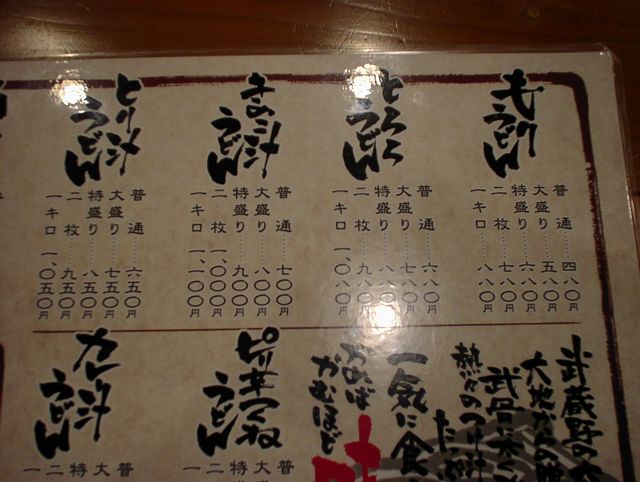 もりうどん
普通……四八〇円
大盛り……五八〇円
特盛り……六八〇円
二枚……七八〇円
一キロ……八八〇円
とろろうどん
普通……六八〇円
大盛り……七八〇円
特盛り……八八〇円
二枚……九八〇円
一キロ 一、〇八〇円
きのこ汁うどん
普通……七〇〇円
大盛り……八〇〇円
特盛り……九〇〇円
二枚 一、〇〇〇円
一キロ 一、一〇〇円
とり汁うどん
普通……六五〇円
大盛り……七五〇円
特盛り……八五〇円
二枚……九五〇円
一キロ 一、〇五〇円
武蔵野の
大地からの
武骨に太く
熱々のつけ汁
たっぷ
一気に食
かめば
かむほど
味
ピリ辛つくねうどん
普
大
特
二
一
カレー汁うどん
普
大
特
二
一